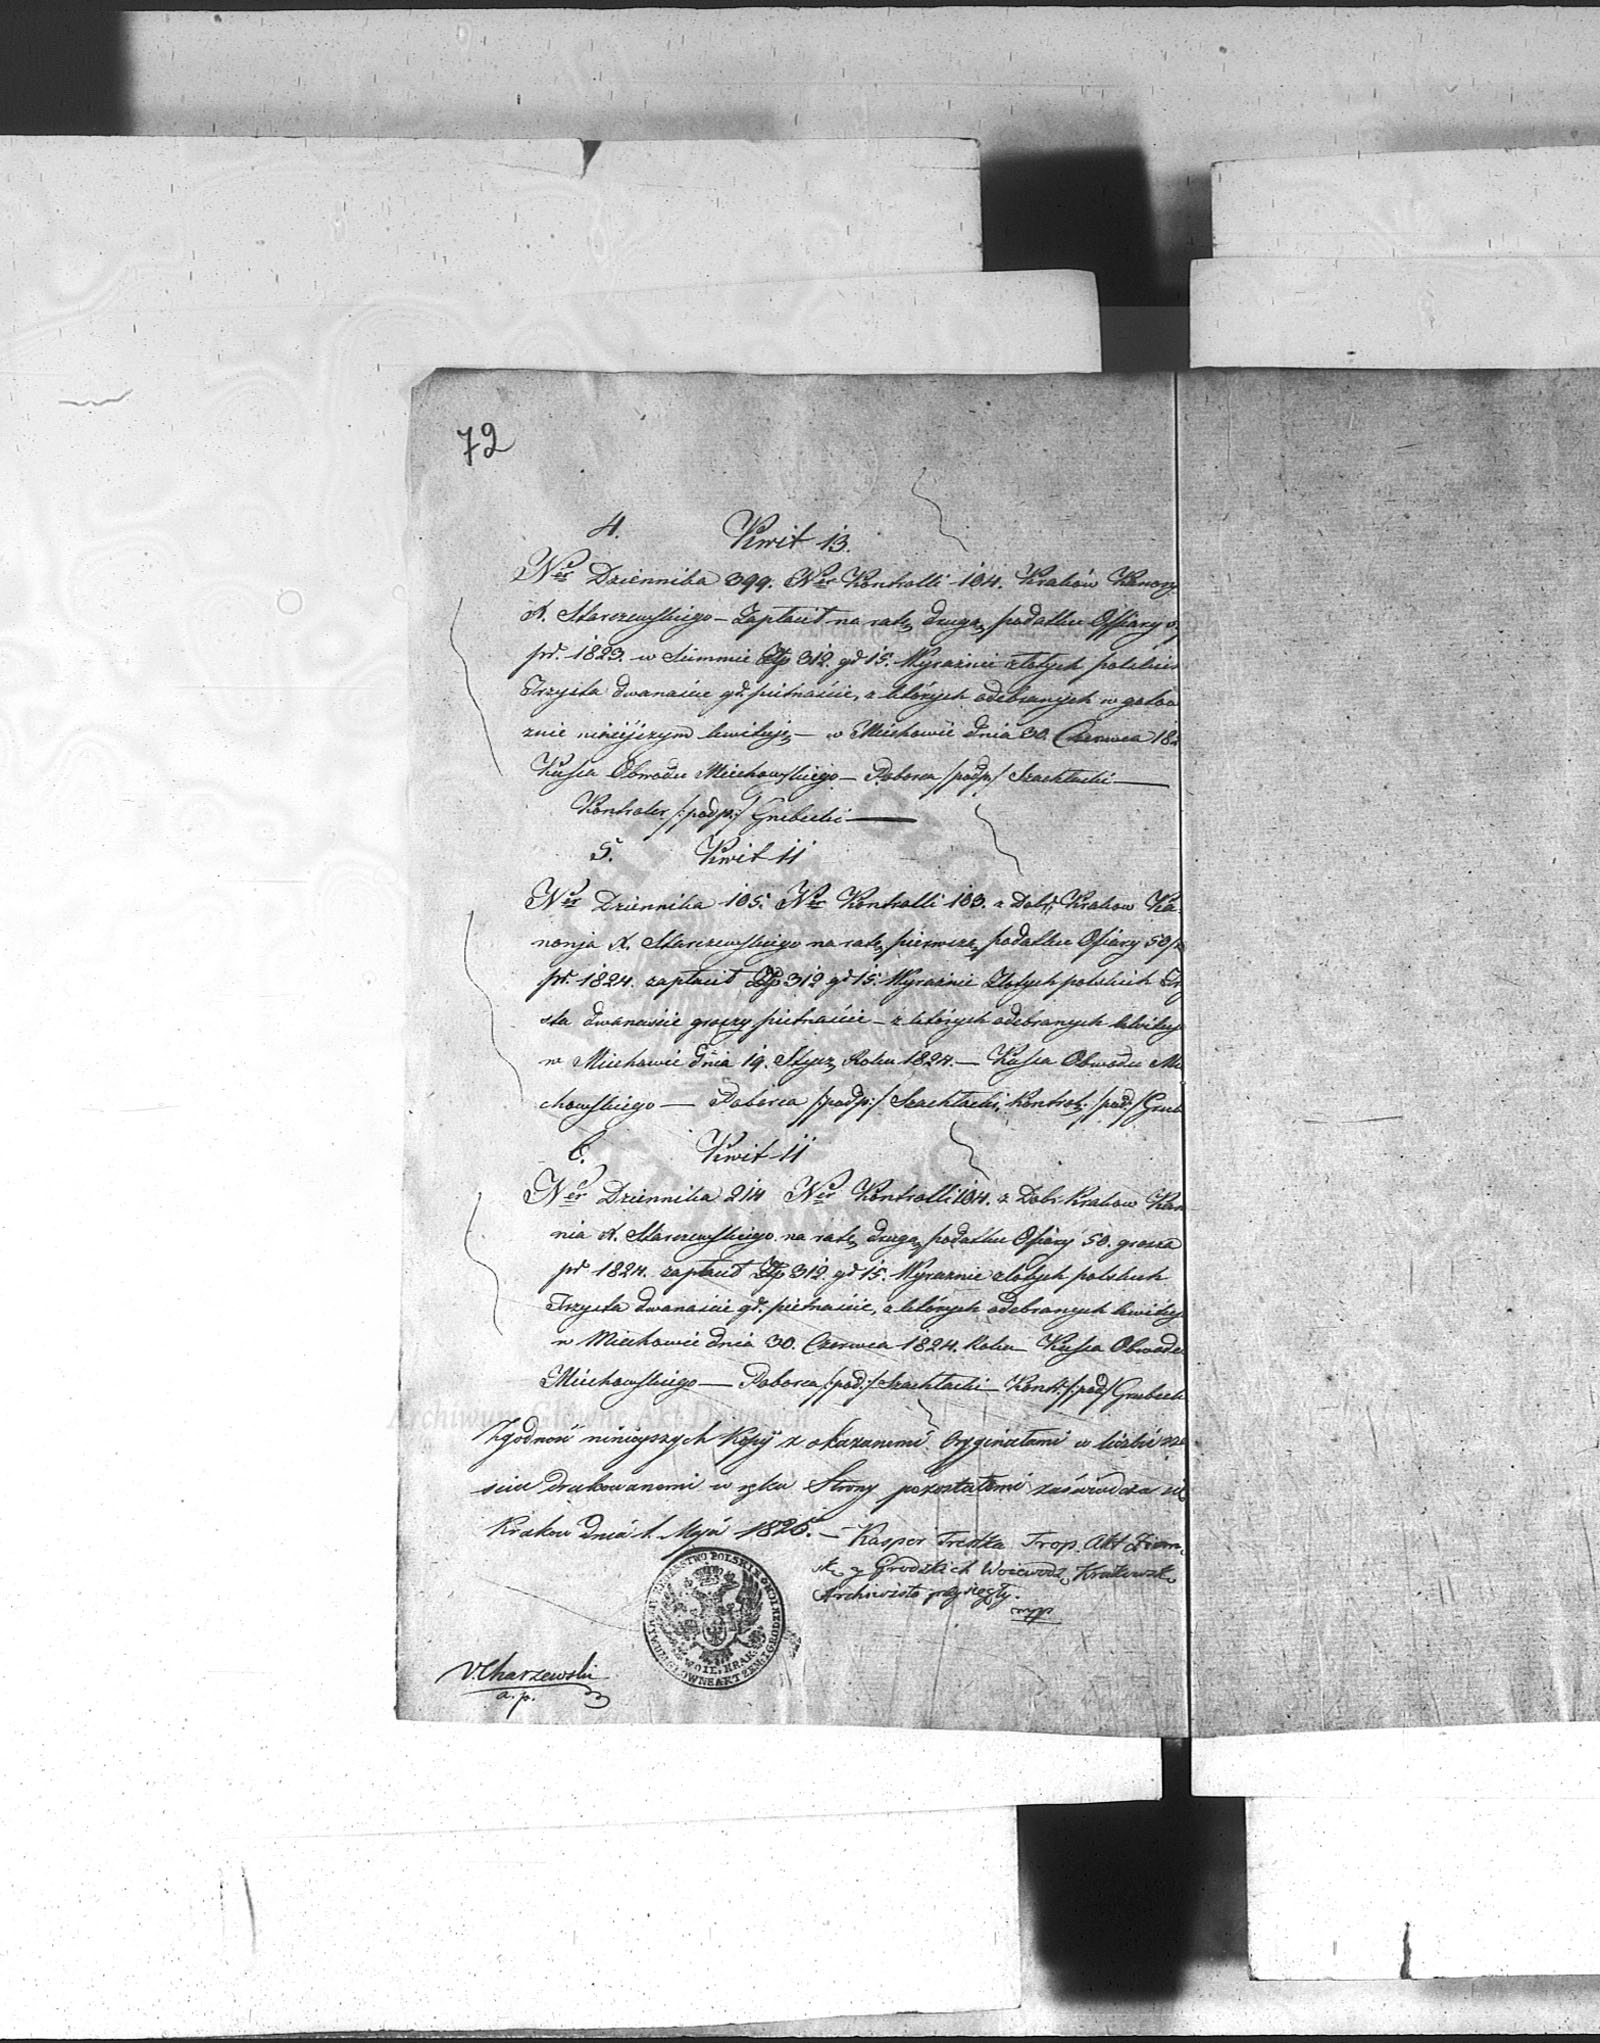 72
4. Kwit 13.
Ner Dziennika 399. Ner Kontrolli 104. Kraków Kanony
X. Starczewskiego – Zapłacił na ratę drugą podatku Offiary
pr. 1823. w Summie Złp 312. gr 15. Wyraźnie złotych polskich
Trzysta dwanaście gr. piętnaście, z których odebranych w goto
znie nineyszym kwituję – w Miechowie dnia 30. Czerwca 182
Kassa Obwodu Miechowskiego – Poborca /podp:/ Szachłacki
Kontroler /:podp:/ Grubecki
5. Kwit 11
Ner Dziennika 105. Ner Kontrolli 103. z Dobr Krakow Ka
nonja X. Starczewskiego na ratę pierwszą podatku Ofiary 50
pr. 1824. zapłacił Złp 312 gr 15. Wyraźnie Złotych polskich Trzy
sta dwanaście groszy piętnaście – z których odebranych kwituję
w Miechowie dnia 19. Stycz. Roku 1824. – Kassa Obwodu Mie
chowskiego – Poborca /:podp:/ Szachłacki, Kontrol: /:pod:/ Grub
6. Kwit 11
Ner Dziennika 214 Ner Kontrolli 104. z Dobr Krakow Kano
nia X. Starczewskiego na ratę drugą podatku Ofiary 50. grosza
pr 1824. zapłacił Złp 312. gr 15. Wyraźnie złotych polskich
Trzysta dwanaście gr. piętnaście, z których odebranych kwituję
w Miechowie dnia 30. Czerwca 1824. Roku – Kassa Obwodu
Miechowskiego – Poborca /:pod:/ Szachłacki – Kontr: /:pod:/ Grubecki
Zgodność ninieyszych Kopij z okazanemi Oryginałami w liczbie sze
ściu drukowanemi w ręku Strony pozostałemi zaświadcza się
Krakow dnia 1. Maja 1826. – Kasper Tresłka Trop. Akt Ziem
sk. y Grodzkich Woiewodz. Krakowsk.
Archiwista przysięgły.
mpp
WOIE. KRAK.
V. Charzewski
a. p.
Archiwum Główne Akt Dawnych